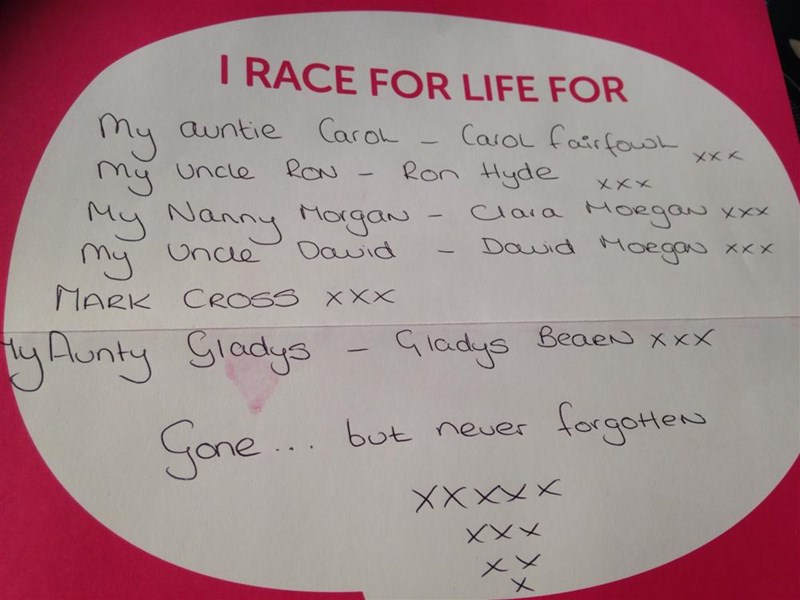 I RACE FOR LIFE FOR
My auntie Carol - Carol Fairfowl xxx
My Uncle Ron - Ron Hyde xxx
My Nanny Morgan - Clara Morgan xxx
My Uncle David - David Morgan xxx
MARK CROSS xxx
My Aunty Gladys - Gladys xxx
Gone... but never forgotten
xxxxx
xxx
xx
x